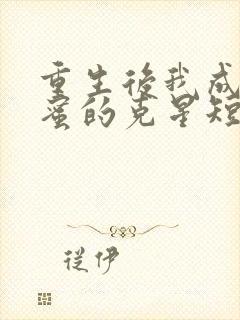 重生後我成
蜜的克星短
從伊